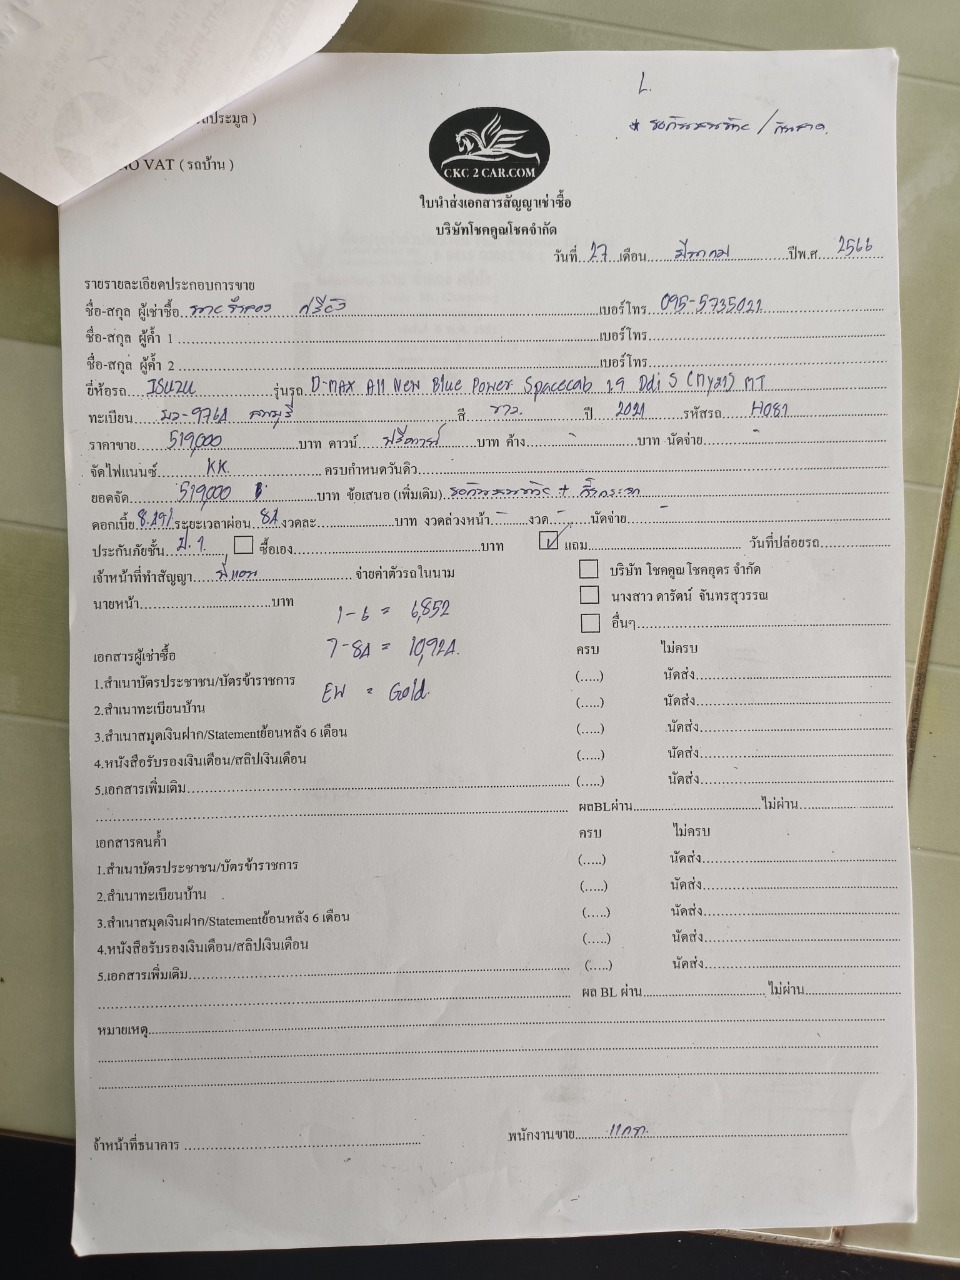 ถประมูล )
NO VAT ( รถบ้าน )
CKC 2 CAR.COM
ใบนำส่งเอกสารสัญญาเช่าซื้อ
บริษัทโชคคูณโชคจำกัด
วันที่ 27 เดือน มีนาคม ปีพ.ศ. 2566
รายรายละเอียดประกอบการขาย
ชื่อ-สกุล ผู้เช่าซื้อ เบอร์โทร 095-5735021
ชื่อ-สกุล ผู้ค้ำ 1 เบอร์โทร
ชื่อ-สกุล ผู้ค้ำ 2 เบอร์โทร
ยี่ห้อรถ ISUZU รุ่นรถ D-MAX All New Blue Power Spacecab 1.9 Ddi S (My21) MT
ทะเบียน สี ขาว ปี 2021 รหัสรถ H081
ราคาขาย 519,000 บาท ดาวน์ ฟรีดาวน์ บาท ค้าง - บาท นัดจ่าย -
จัดไฟแนนซ์ KK. ครบกำหนดวันดิว
ยอดจัด 519,000 บาท ข้อเสนอ (เพิ่มเติม)
ดอกเบี้ย ระยะเวลาผ่อน 84 งวดละ บาท งวดล่วงหน้า - งวด - นัดจ่าย -
ประกันภัยชั้น ป.1 ซื้อเอง บาท ✓ แถม วันที่ปล่อยรถ
เจ้าหน้าที่ทำสัญญา จ่ายค่าตัวรถในนาม บริษัท โชคคูณโชคอุดร จำกัด
นายหน้า บาท นางสาว ดารัตน์ จันทรสุวรรณ
1-6 = 6,852 อื่นๆ
7-84 = 10,924.
เอกสารผู้เช่าซื้อ ครบ ไม่ครบ
EW = Gold.
1.สำเนาบัตรประชาชน/บัตรข้าราชการ (.....) นัดส่ง
2.สำเนาทะเบียนบ้าน (.....) นัดส่ง
3.สำเนาสมุดเงินฝาก/Statementย้อนหลัง 6 เดือน (.....) นัดส่ง
4.หนังสือรับรองเงินเดือน/สลิปเงินเดือน (.....) นัดส่ง
5.เอกสารเพิ่มเติม (.....) นัดส่ง
ผลBLผ่าน ไม่ผ่าน
เอกสารคนค้ำ ครบ ไม่ครบ
1.สำเนาบัตรประชาชน/บัตรข้าราชการ (.....) นัดส่ง
2.สำเนาทะเบียนบ้าน (.....) นัดส่ง
3.สำเนาสมุดเงินฝาก/Statementย้อนหลัง 6 เดือน (.....) นัดส่ง
4.หนังสือรับรองเงินเดือน/สลิปเงินเดือน (.....) นัดส่ง
5.เอกสารเพิ่มเติม (.....) นัดส่ง
ผล BL ผ่าน ไม่ผ่าน
หมายเหตุ
จ้าหน้าที่ธนาคาร พนักงานขาย